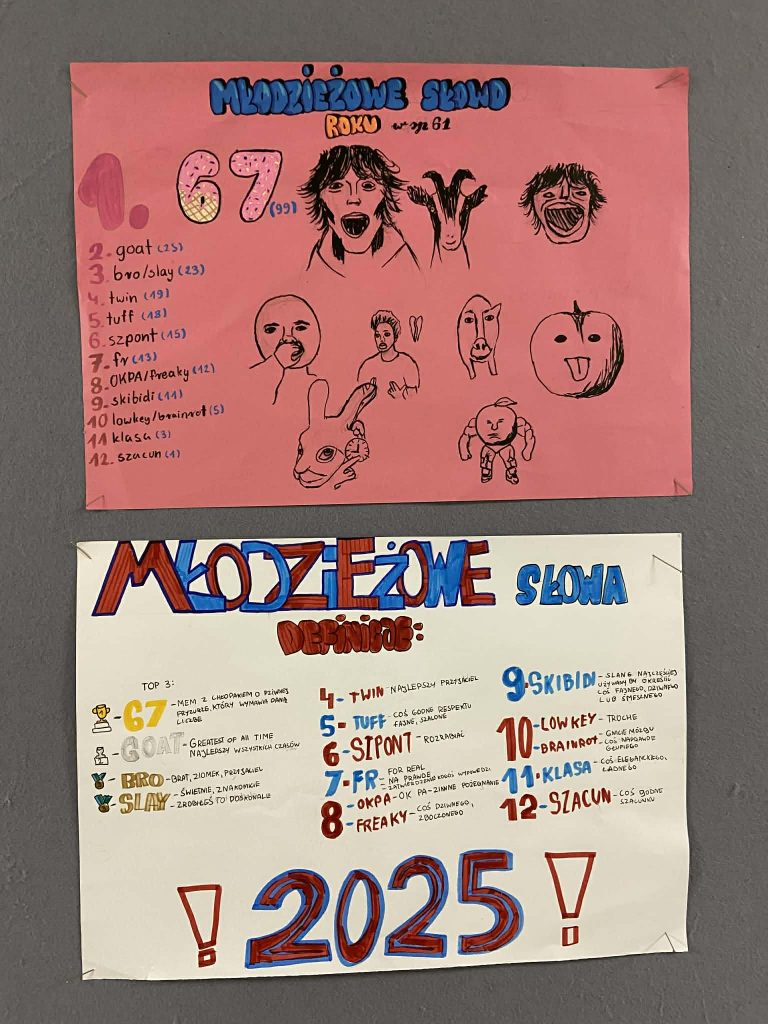 MŁODZIEŻOWE SŁOWO
ROKU w sp 61
1. 67 (99)
2. goat (25)
3. bro/slay (23)
4. twin (19)
5. tuff (18)
6. szpont (15)
7. fr (13)
8. OKPA/freaky (12)
9. skibidi (11)
10 lowkey/brainrot (5)
11 klasa (3)
12. szacun (1)
MŁODZIEŻOWE SŁOWA
DEFINICJE:
TOP 3:
67 - MEM Z CHŁOPAKIEM O DZIWNEJ
FRYZURZE, KTÓRY WYMAWIA DANĄ
LICZBĘ
GOAT - GREATEST OF ALL TIME
NAJLEPSZY WSZYSTKICH CZASÓW
BRO - BRAT, ZIOMEK, PRZYJACIEL
SLAY - ŚWIETNIE, ZNAKOMICIE
- ZROBIŁEŚ TO DOSKONALE
4 - TWIN - NAJLEPSZY PRZYJACIEL
5 - TUFF - COŚ GODNE RESPEKTU
FAJNE, SZALONE
6 - SZPONT - ROZRABIAĆ
7 - FR - FOR REAL
- NA PRAWDĘ
- ZATWIERDZENIE KOGOŚ WYPOWIEDZI
8 - OKPA - OK PA - ZINNE POŻEGNANIE
- FREAKY - COŚ DZIWNEGO,
ZBOCZONEGO
9 - SKIBIDI - SLANG NAJCZĘŚCIEJ
UŻYWANY BY OKREŚLIĆ
COŚ FAJNEGO, DZIWNEGO
LUB ŚMIESZNEGO
10 - LOWKEY - TROCHĘ
- BRAINROT - GNICIE MÓZGU
- COŚ NAPRAWDĘ
GŁUPIEGO
11 - KLASA - COŚ ELEGANCKIEGO,
ŁADNEGO
12 - SZACUN - COŚ GODNE
SZACUNKU
! 2025 !